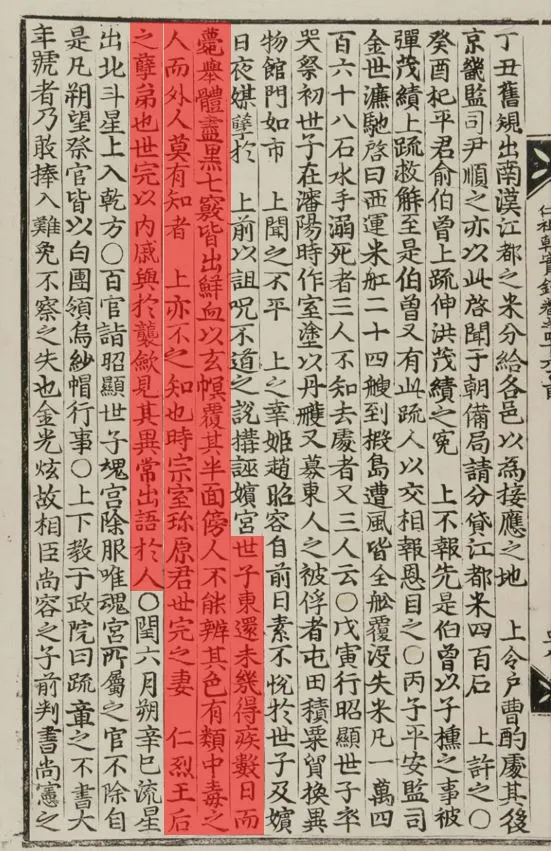 丁丑舊規出南漢江都之米分給各邑以爲接應之地　上令戶曹酌處其後
京畿監司尹順之亦以此啓聞于朝備局請分貸江都米四百石　上許之○
癸酉杞平君兪伯曾上疏伸洪茂績之冤　上不報先是伯曾以子櫶之事被
彈茂績上疏救解至是伯曾又有此疏人以交相報恩目之○丙子平安監司
金世濂馳啓曰西運米舡二十四艘到椵島遭風皆全舩覆沒失米凡一萬四
百六十八石水手溺死者三人不知去處者又三人云○戊寅行昭顯世子卒
哭祭初世子在瀋陽時作室塗以丹雘又募東人之被俘者屯田積粟貿換異
物館門如市　上聞之不平　上之幸姬趙昭容自前日素不悅於世子及嬪
日夜媒孼於　上前以詛呪不道之說搆誣嬪宮世子東還未幾得疾數日而
薨擧體盡黑七竅皆出鮮血以玄幎覆其半面傍人不能辨其色有類中毒之
人而外人莫有知者　上亦不之知也時宗室珍原君世完之妻　仁烈王后
之孼弟也世完以內戚與於襲斂見其異常出語於人○閏六月朔辛巳流星
出北斗星上入乾方○百官詣昭顯世子魂宮除服唯魂宮所屬之官不除自
是凡朔望祭官皆以白團領烏紗帽行事○上下敎于政院曰疏章之不書大
年號者乃敢捧入難免不察之失也金光炫故相臣尙容之子前判書尙憲之